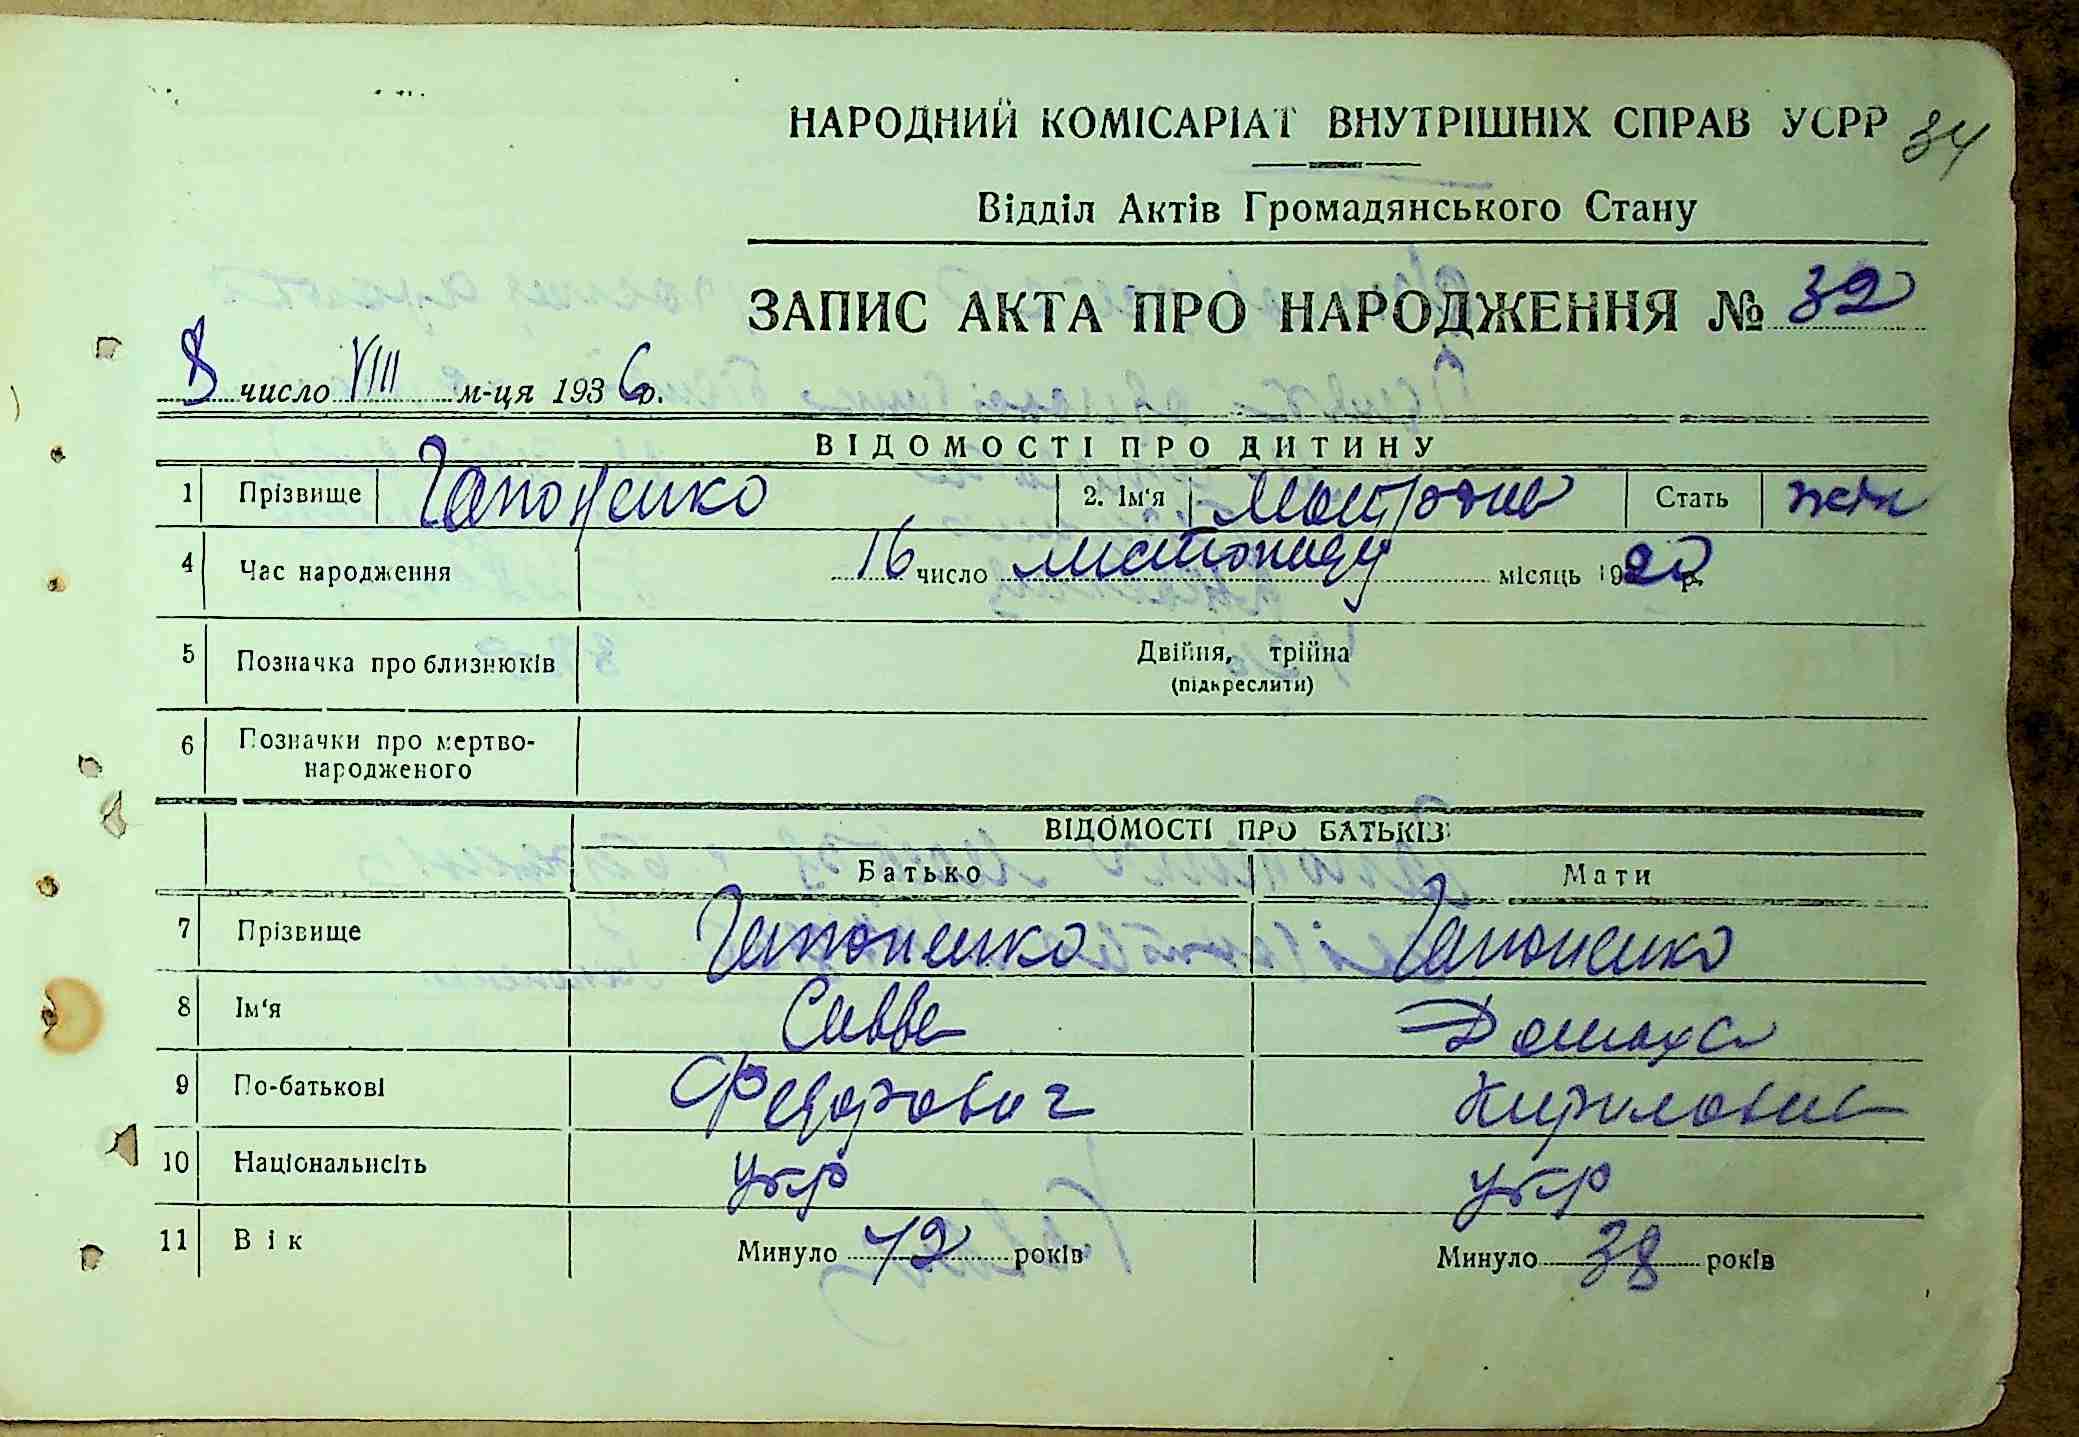 34
НАРОДНИЙ КОМІСАРІАТ ВНУТРІШНІХ СПРАВ УСРР
Відділ Актів Громадянського Стану
ЗАПИС АКТА ПРО НАРОДЖЕННЯ № 32
8 число VIII м-ця 1936 р.
ВІДОМОСТІ ПРО ДИТИНУ
1 Прізвище Гапоненко 2. Ім'я Мотрона Стать жін
4 Час народження 16 число листопаду місяць 1920 р.
5 Позначка про близнюків Двійня, трійна
(підкреслити)
6 Позначки про мертво-
народженого
ВІДОМОСТІ ПРО БАТЬКІВ
Батько Мати
7 Прізвище Гапоненко Гапоненко
8 Ім'я Савва Домаха
9 По-батькові Федорович Кириловна
10 Національність укр укр
11 Вік Минуло 42 років Минуло 38 років